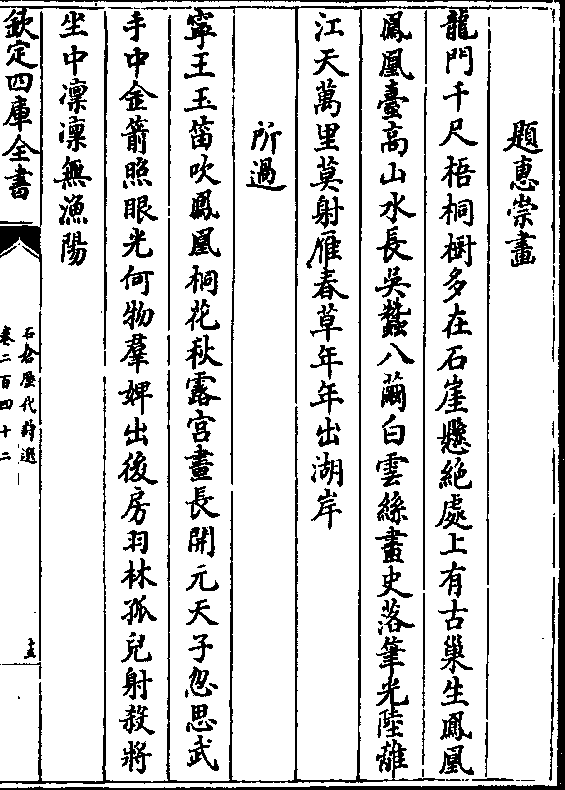 題惠崇畫
龍門千尺梧桐樹多在石崖懸絶處上有古巢生鳳凰
鳳凰臺高山水長吳蠶八繭白雲絲畫史落筆光陸離
江天萬里莫射雁春草年年出湖岸
所過
寧王玉笛吹鳳凰桐花秋露宮晝長開元天子忽思武
手中金箭照眼光何物羣婢出後房羽林孤兒射殺將
坐中凜凜無漁陽
欽定四庫全書
石倉歴代詩選
卷二百四十二